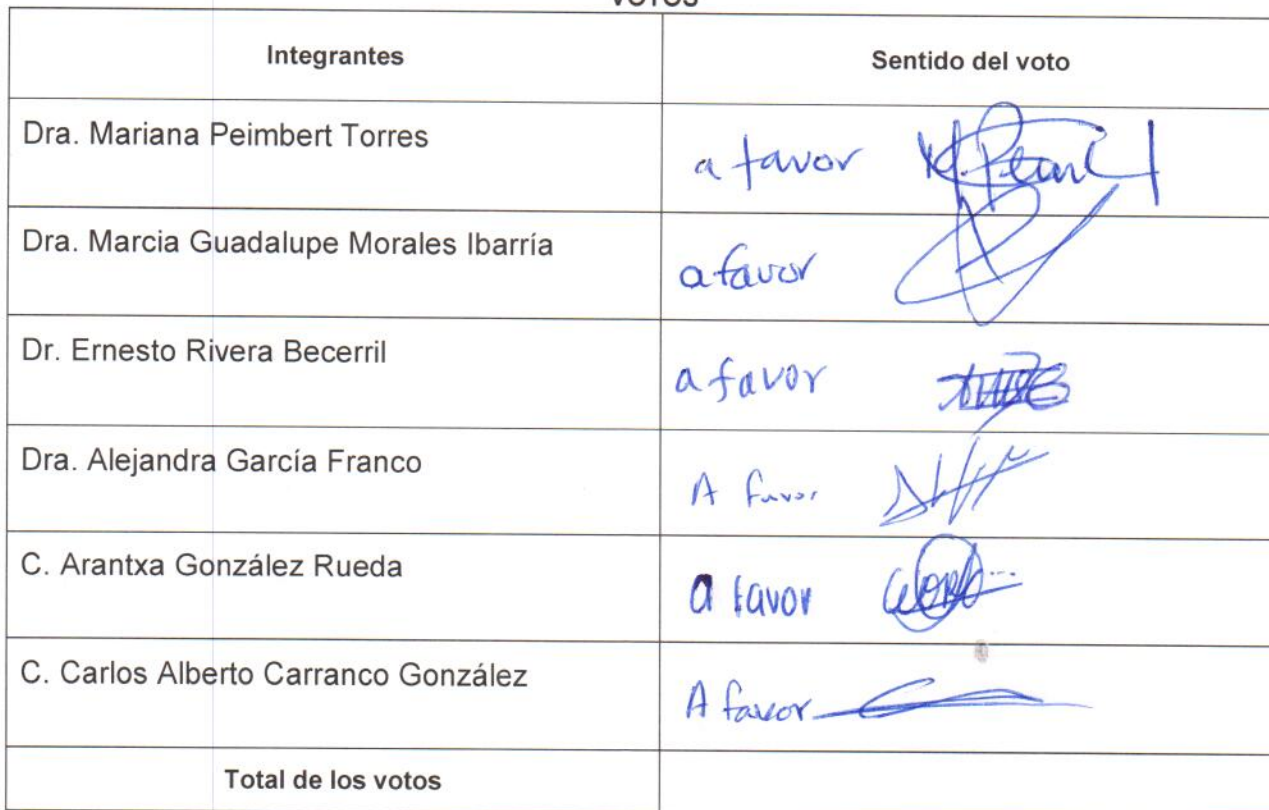 VOTOS
Integrantes Sentido del voto
Dra. Mariana Peimbert Torres a favor
Dra. Marcia Guadalupe Morales Ibarría a favor
Dr. Ernesto Rivera Becerril a favor
Dra. Alejandra García Franco A favor
C. Arantxa González Rueda a favor
C. Carlos Alberto Carranco González A favor
Total de los votos